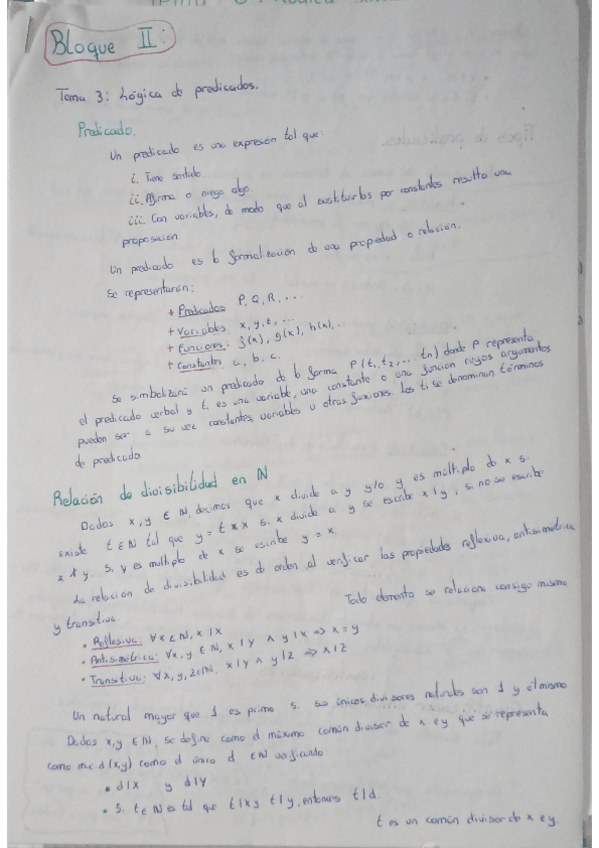 Bloque II:
Tema 3: Lógica de predicados.
Predicado.
Un predicado es una expresión tal que:
i. Tiene sentido.
ii. Afirma o niega algo.
iii. Con variables, de modo que al sustituirlas por constantes resulta una
proposición.
Un predicado es la formalización de una propiedad o relación.
Se representarán:
+ Predicados P, Q, R, ...
+ Variables x, y, t, ...
+ Funciones: f(x), g(x), h(x), ...
+ Constantes a, b, c.
Se simbolizará un predicado de la forma P(t₁, t₂, ... tn) donde P representa
el predicado verbal y ti es una variable, una constante o una función cuyos argumentos
pueden ser a su vez constantes, variables u otras funciones. Los ti se denominan términos
de predicado.
Relación de divisibilidad en ℕ
Dados x, y ∈ ℕ, decimos que x divide a y y/o y es múltiplo de x si
existe t ∈ ℕ tal que y = t * x si x divide a y se escribe x | y, si no se escribe
x ∤ y. Si y es multiplo de x se escribe y = x.
La relación de divisibilidad es de orden al verificar las propiedades reflexiva, antisimétrica
y transitiva.
Todo elemento se relaciona consigo mismo
• Reflexiva: ∀x ∈ ℕ, x | x
• Antisimétrica: ∀x, y ∈ ℕ, x | y ∧ y | x => x = y
• Transitiva: ∀x, y, z ∈ ℕ, x | y ∧ y | z => x | z
Un natural mayor que 1 es primo si sus únicos divisores naturales son 1 y él mismo.
Dados x, y ∈ ℕ, se define como el máximo común divisor de x e y que se representa
como m.c.d (x,y) como el único d ∈ ℕ verificando:
• d | x y d | y
• Si t ∈ ℕ es tal que t | x y t | y, entonces t | d.
t es un común divisor de x e y.